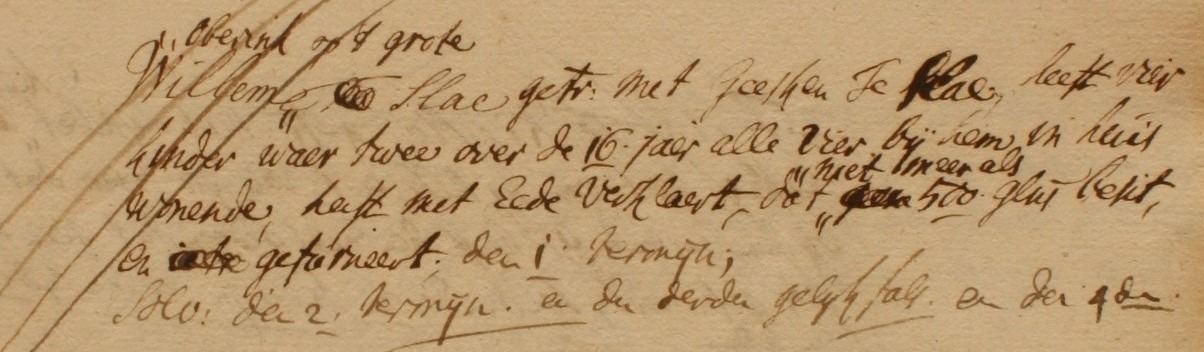 oberink op't grote
Willem Slae getr: met Geesken Te Slae, heeft vier
kinder waer twee over de 16 jaer alle vier bij hem in huis
niet meer als
wonende, heeft met Eede Verklaert, dat 500 glns besit,
en getarneert. den 1 termijn;
Solv: den 2. termijn. en den derden gelijk fals. en den 4 den